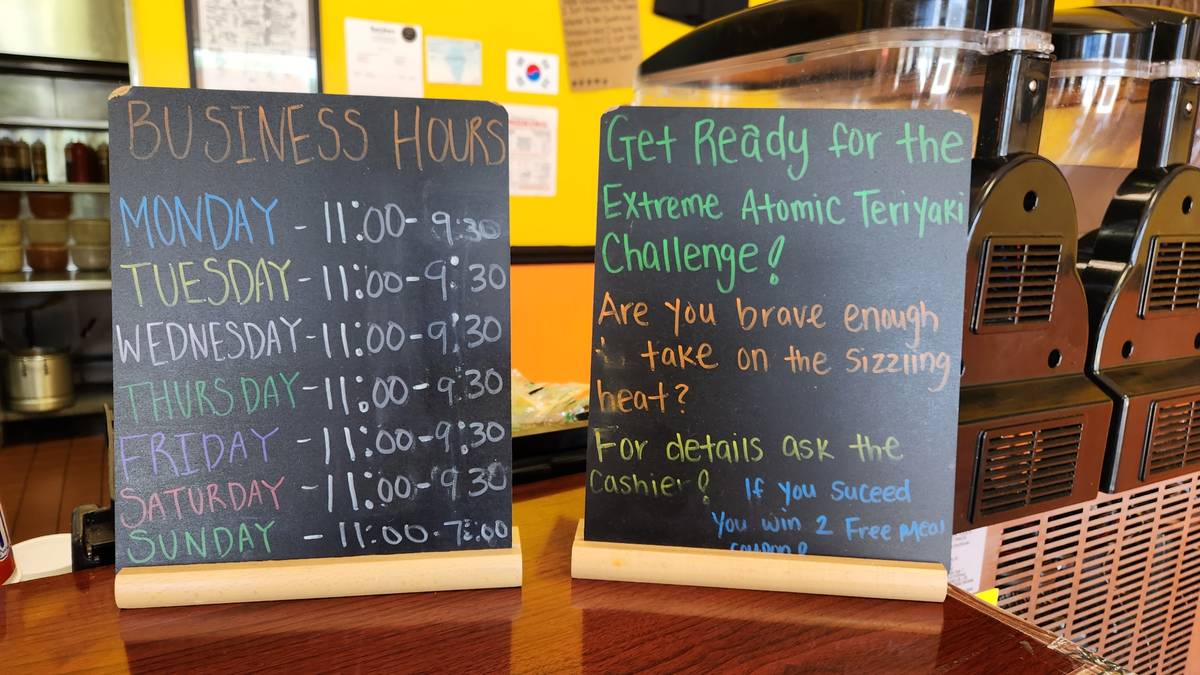 BUSINESS HOURS
MONDAY - 11:00-9:30
TUESDAY-11:00-9:30
WEDNESDAY-11:00-9:30
THURSDAY-11:00-9:30
FRIDAY -11:00-9:30
SATURDAY -11:00-9:30
SUNDAY - 11:00-7:00
Get Ready for the
Extreme Atomic Teriyaki
Challenge!
Are you brave enough
take on the sizzling
heat?
For details ask the
Cashier!
If you suceed
You win 2 Free meal
coupon!